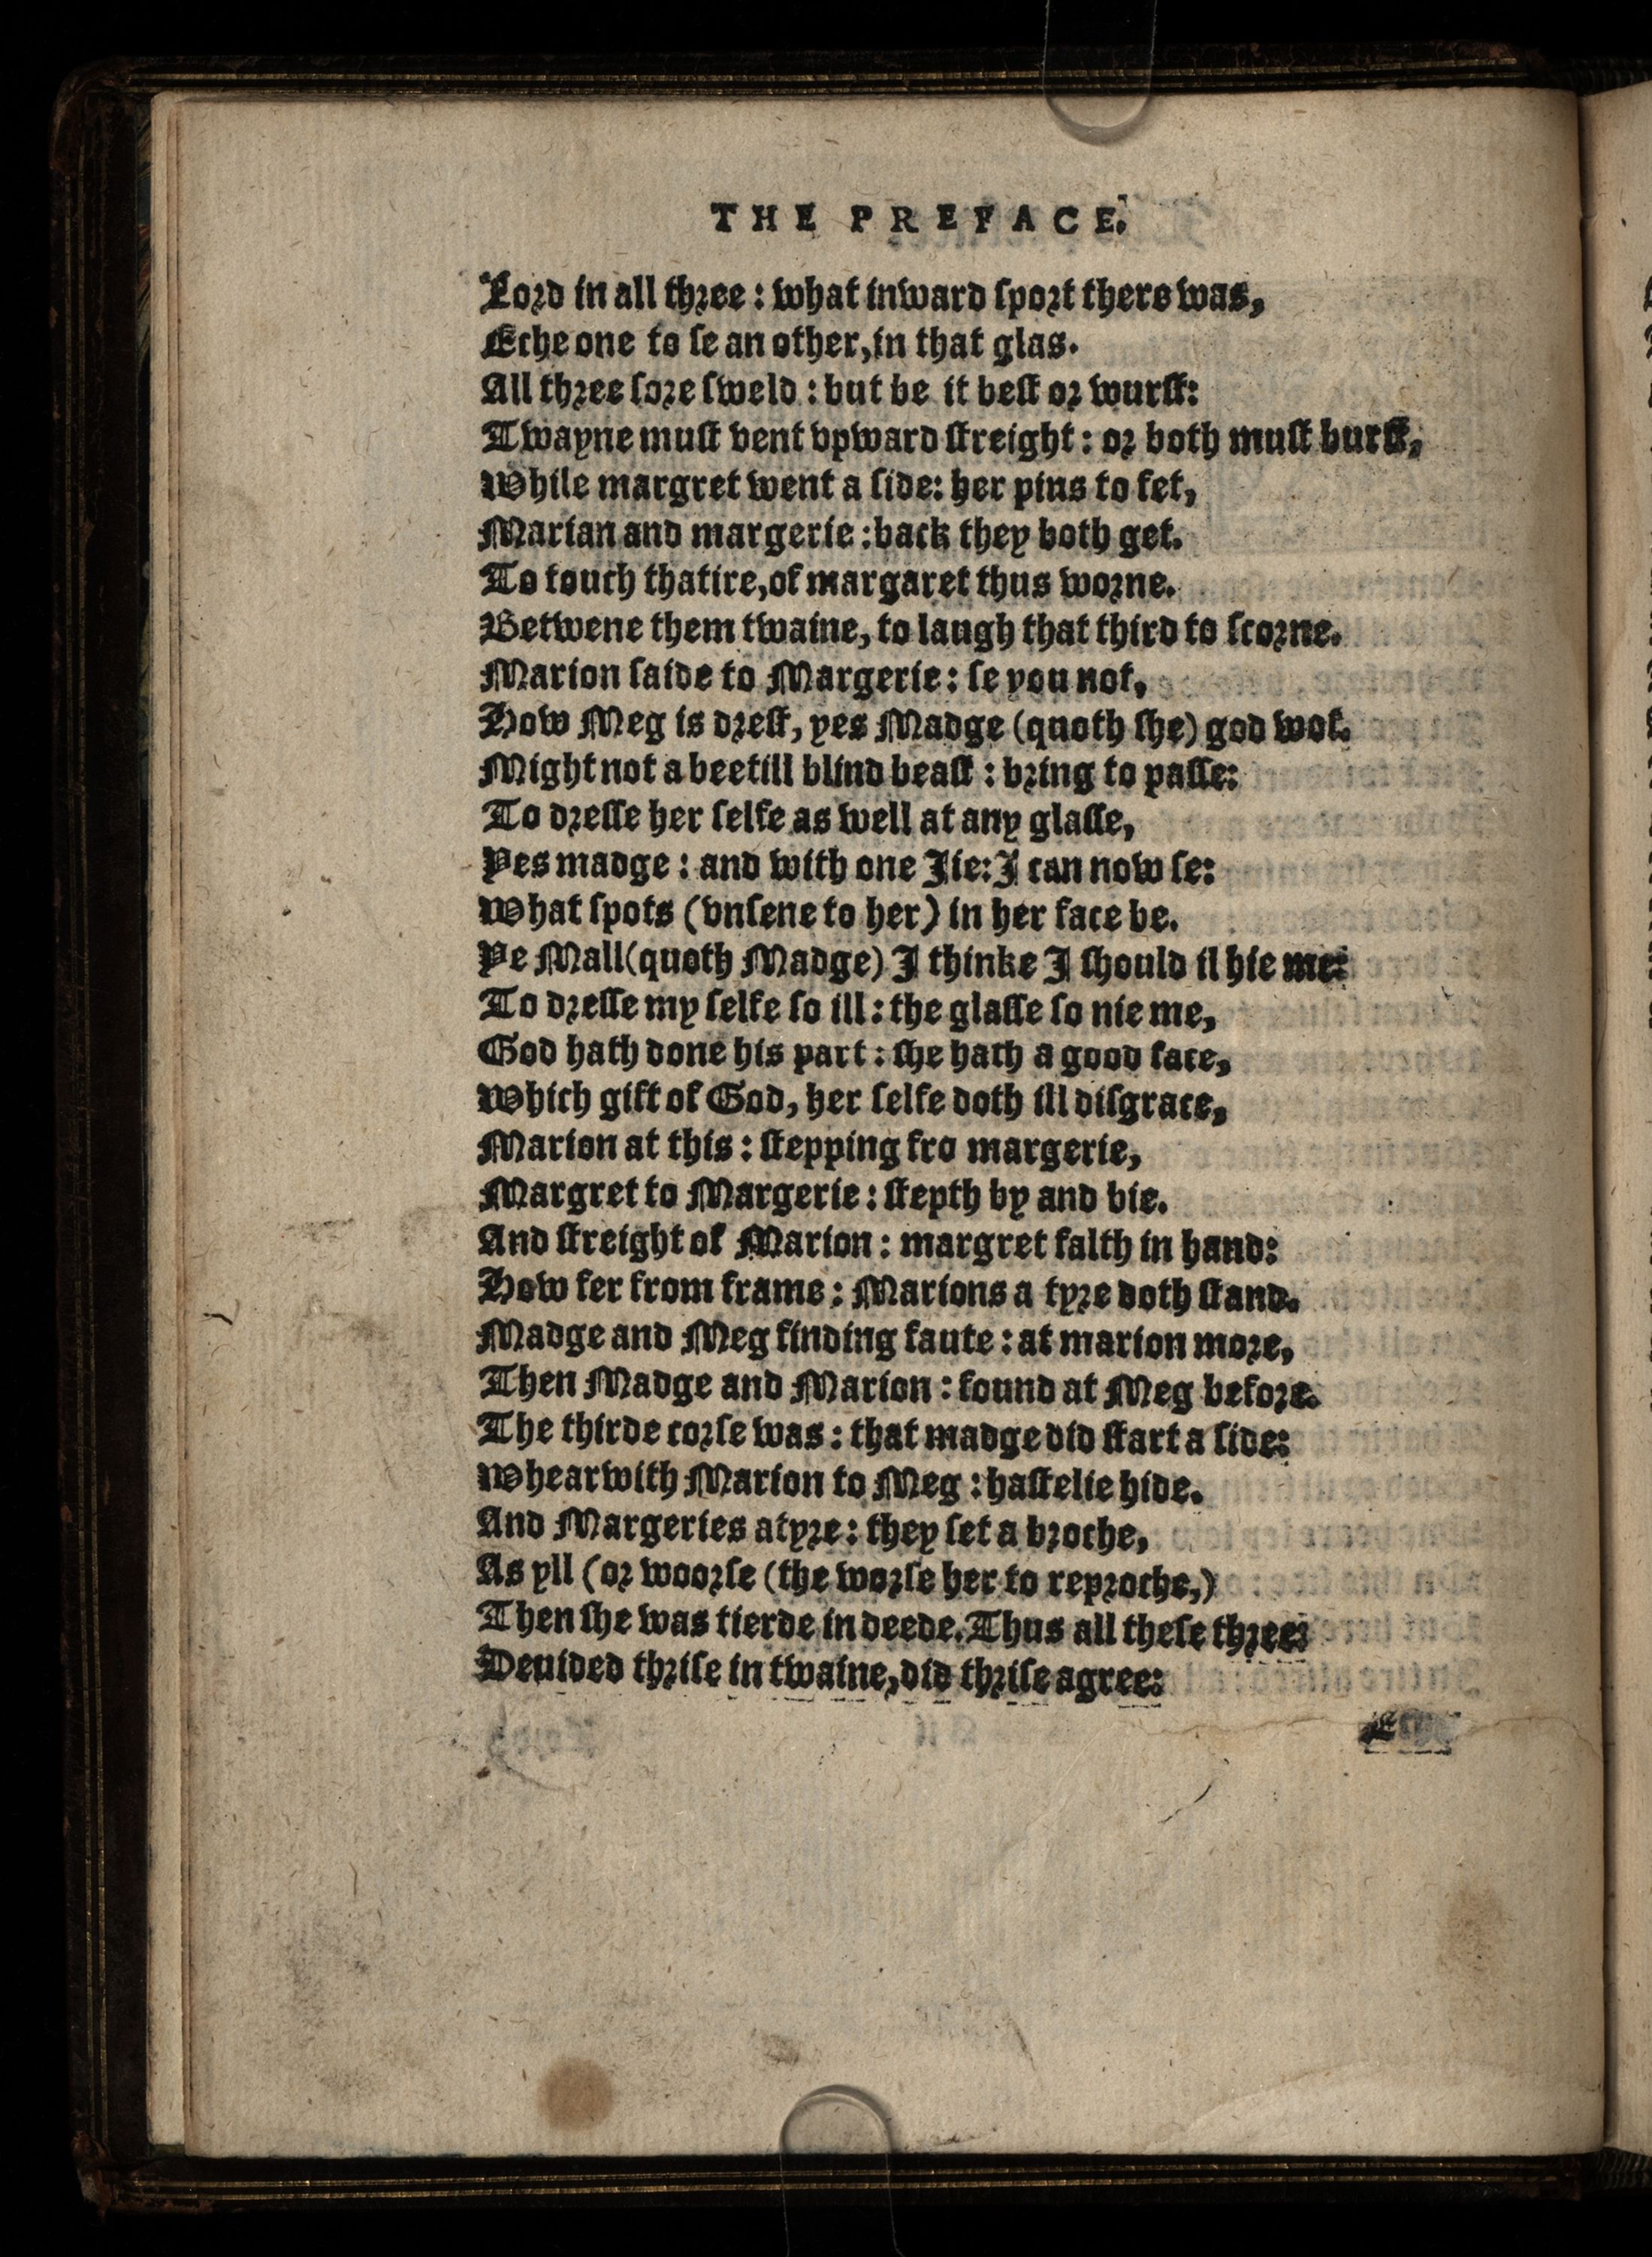 THE PREFACE.
Lord in all three : what inward ſport there was,
Eche one to ſe an other, in that glas.
All three ſore ſweld : but be it beſt or wurſt:
Twayne muſt vent vpward ſtreight : or both muſt burſt,
While margret went a ſide: her pins to fet,
Marian and margerie : back they both get.
To touch thatire, of margaret thus worne.
Betwene them twaine, to laugh that third to ſcorne.
Marion ſaide to Margerie : ſe you not,
How Meg is dreſt, yes Madge (quoth ſhe) god wot.
Might not a beetill blind beaſt : bring to paſſe:
To dreſſe her ſelfe as well at any glaſſe,
Yes madge : and with one Iie: I can now ſe:
What ſpots (vnſene to her) in her face be.
Ye Mall (quoth Madge) I thinke I ſhould il hie me:
To dreſſe my ſelfe ſo ill : the glaſſe ſo nie me,
God hath done his part : ſhe hath a good face,
Which gift of God, her ſelfe doth ill diſgrace,
Marion at this : ſtepping fro margerie,
Margret to Margerie : ſtepth by and bie.
And ſtreight of Marion : margret falth in hand:
How fer from frame : Marions a tyre doth ſtand.
Madge and Meg finding faute : at marion more,
Then Madge and Marion : found at Meg before.
The thirde corſe was : that madge did ſtart a ſide:
Whearwith Marion to Meg : haſtelie hide.
And Margeries atyre : they ſet a broche,
As yll (or woorſe (the worſe her to reproche,)
Then ſhe was tierde in deede. Thus all theſe three:
Deuided thriſe in twaine, did thriſe agree: